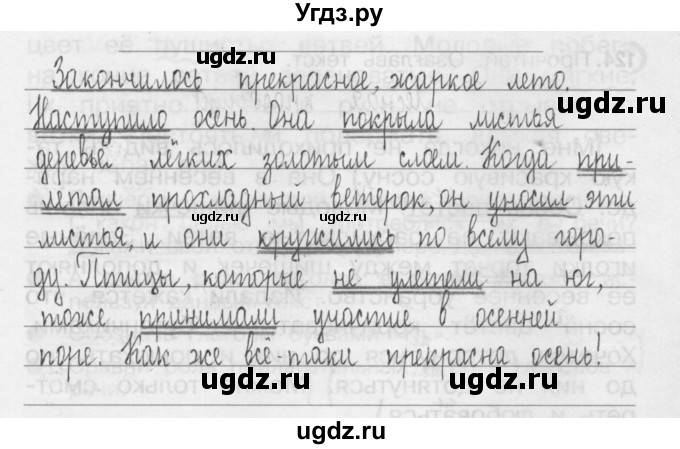 Угдз.ру
Закончилось прекрасное, жаркое лето.
Наступило осень. Она покрыла листья
деревьев лёгких золотым слоем. Когда при-
летал прохладный ветерок, он уносил эти
листья, и они кружились по всему горо-
ду. Птицы, которые не улетели на юг,
тоже принимали участие в осенней
поре. Как же всё-таки прекрасна осень!
ugdz.ru
ugdz.ru
ugdz.ru
ugdz.ru
ugdz.ru
ugdz.ru
ugdz.ru
ugdz.ru
ugdz.ru
ugdz.ru
ugdz.ru
ugdz.ru
ugdz.ru